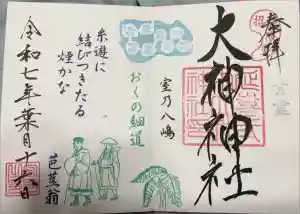 奉拝
大神神社
室乃八嶋
おくの細道
糸遊に
結びつきたる
煙かな
芭蕉翁
令和七年葉月十六日